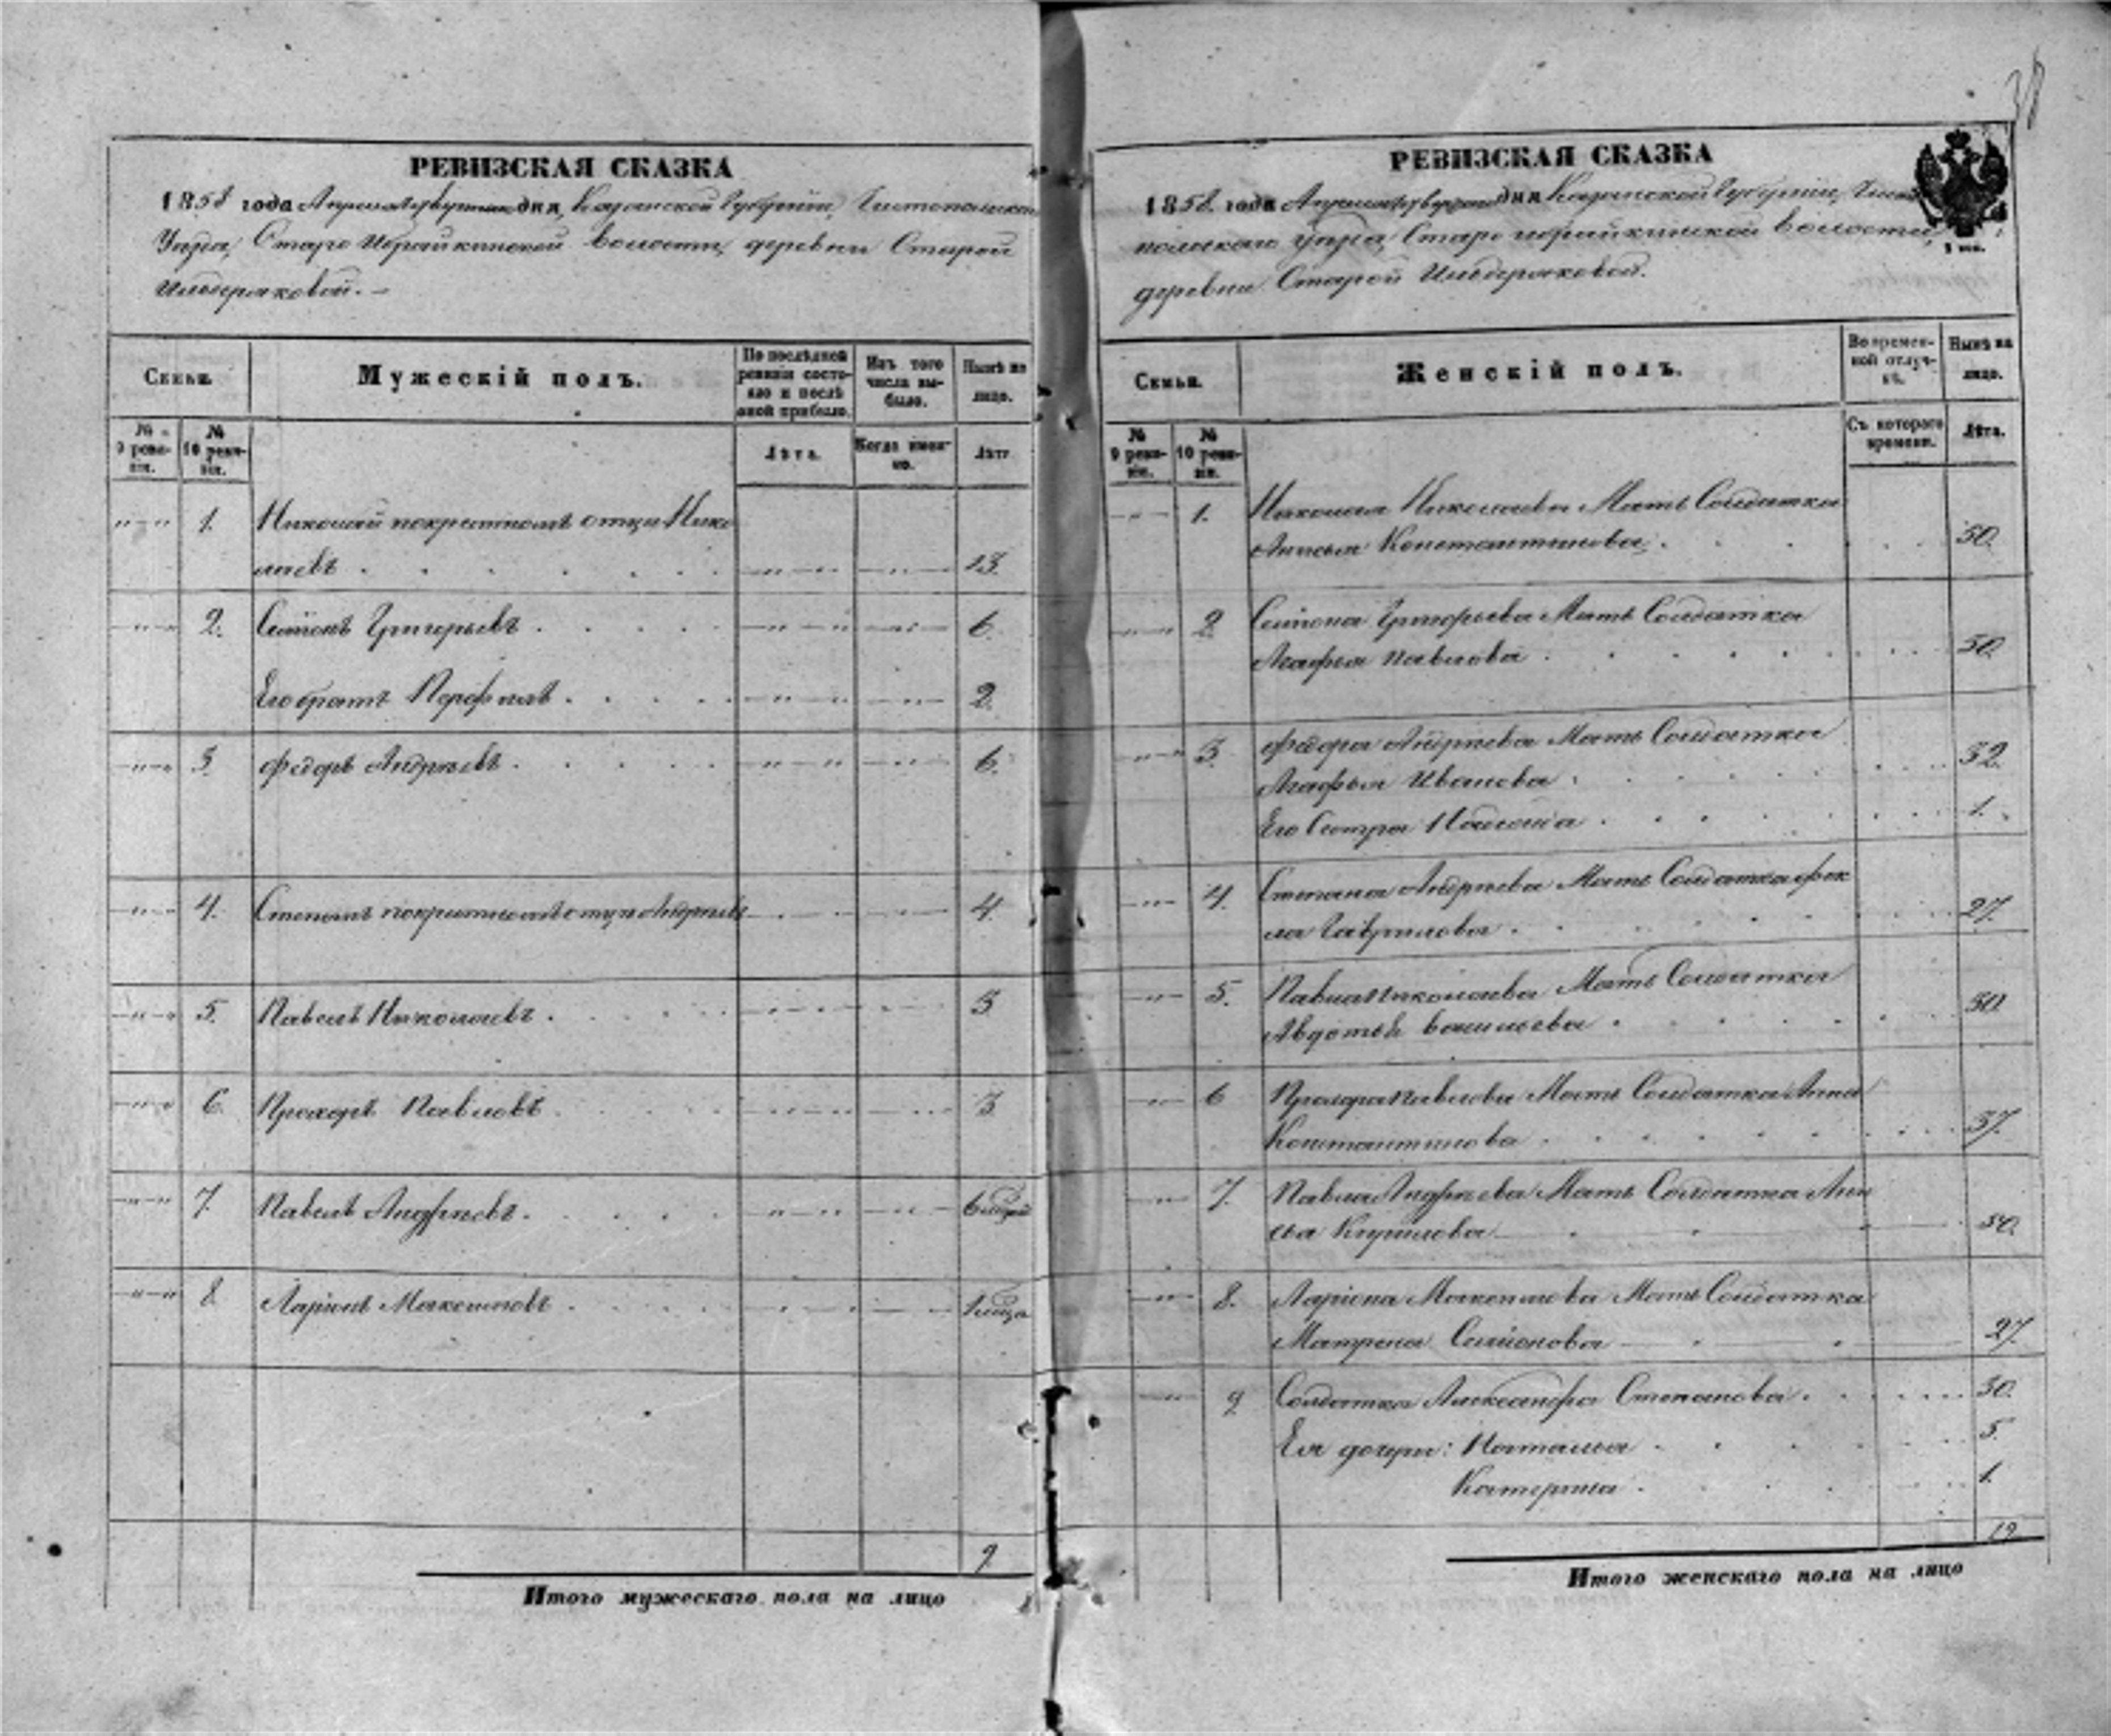 РЕВИЗСКАЯ СКАЗКА
1858 года Апреля дня, Казанской Губерніи, Чистопольскаго
Уѣзда, Старо Ибрайкинской волости, деревни Старой
Ильдеряковой.
Семьи.
Мужескій полъ.
По послѣдней ревизіи состояло и послѣ оной прибыло.
Изъ того числа выбыло.
Нынѣ на лицо.
№ 9 ревизіи.
№ 10 ревизіи.
Лѣта.
Когда именно.
Лѣта
1. Николай по крестномъ отцѣ Нико
лаевъ 13.
2. Семіонъ Григорьевъ 6.
Его братъ Порфилъ 2.
3. Федоръ Андреевъ 6.
4. Степанъ по крестномъ отцѣ Андреевъ 4.
5. Павелъ Николаевъ 3
6. Прохоръ Павловъ 3
7. Павелъ Андреевъ 6
8. Ларіонъ Максимовъ 1
9
Итого мужескаго пола на лицо
РЕВИЗСКАЯ СКАЗКА
1858. года Апреля дня Казанской Губерніи, Чисто
польскаго уѣзда, Старо ибрайкинской волости,
деревни Старой Ильдеряковой.
Семьи.
Женскій полъ.
Во временной отлучкѣ.
Нынѣ на лицо.
№ 9 ревизіи.
№ 10 ревизіи.
Съ котораго времени.
Лѣта.
1. Николая Николаева Мать Солдатка
Анисья Константинова. 50.
2. Семіона Григорьева Мать Солдатка
Агафья Павлова 30
3. Федора Андреева Мать Солдатка
Агафья Иванова 32.
Его Сестра 1.
4. Степана Андреева Мать Солдатка Фек
ла Гаврилова 27.
5. Павла Николаева Мать Солдатка
Авдотья Васильева 30
6 Прохора Павлова Мать Солдатка Анна
Константинова 37.
7. Павла Андреева Мать Солдатка Ани
сья Кирилова
8. Ларіона Максимова Мать Солдатка
Матрена Семіонова 27.
9 Солдатка Александра Степанова 30.
Ея дочери: Наталья 5
Катерина 1.
12
Итого женскаго пола на лицо